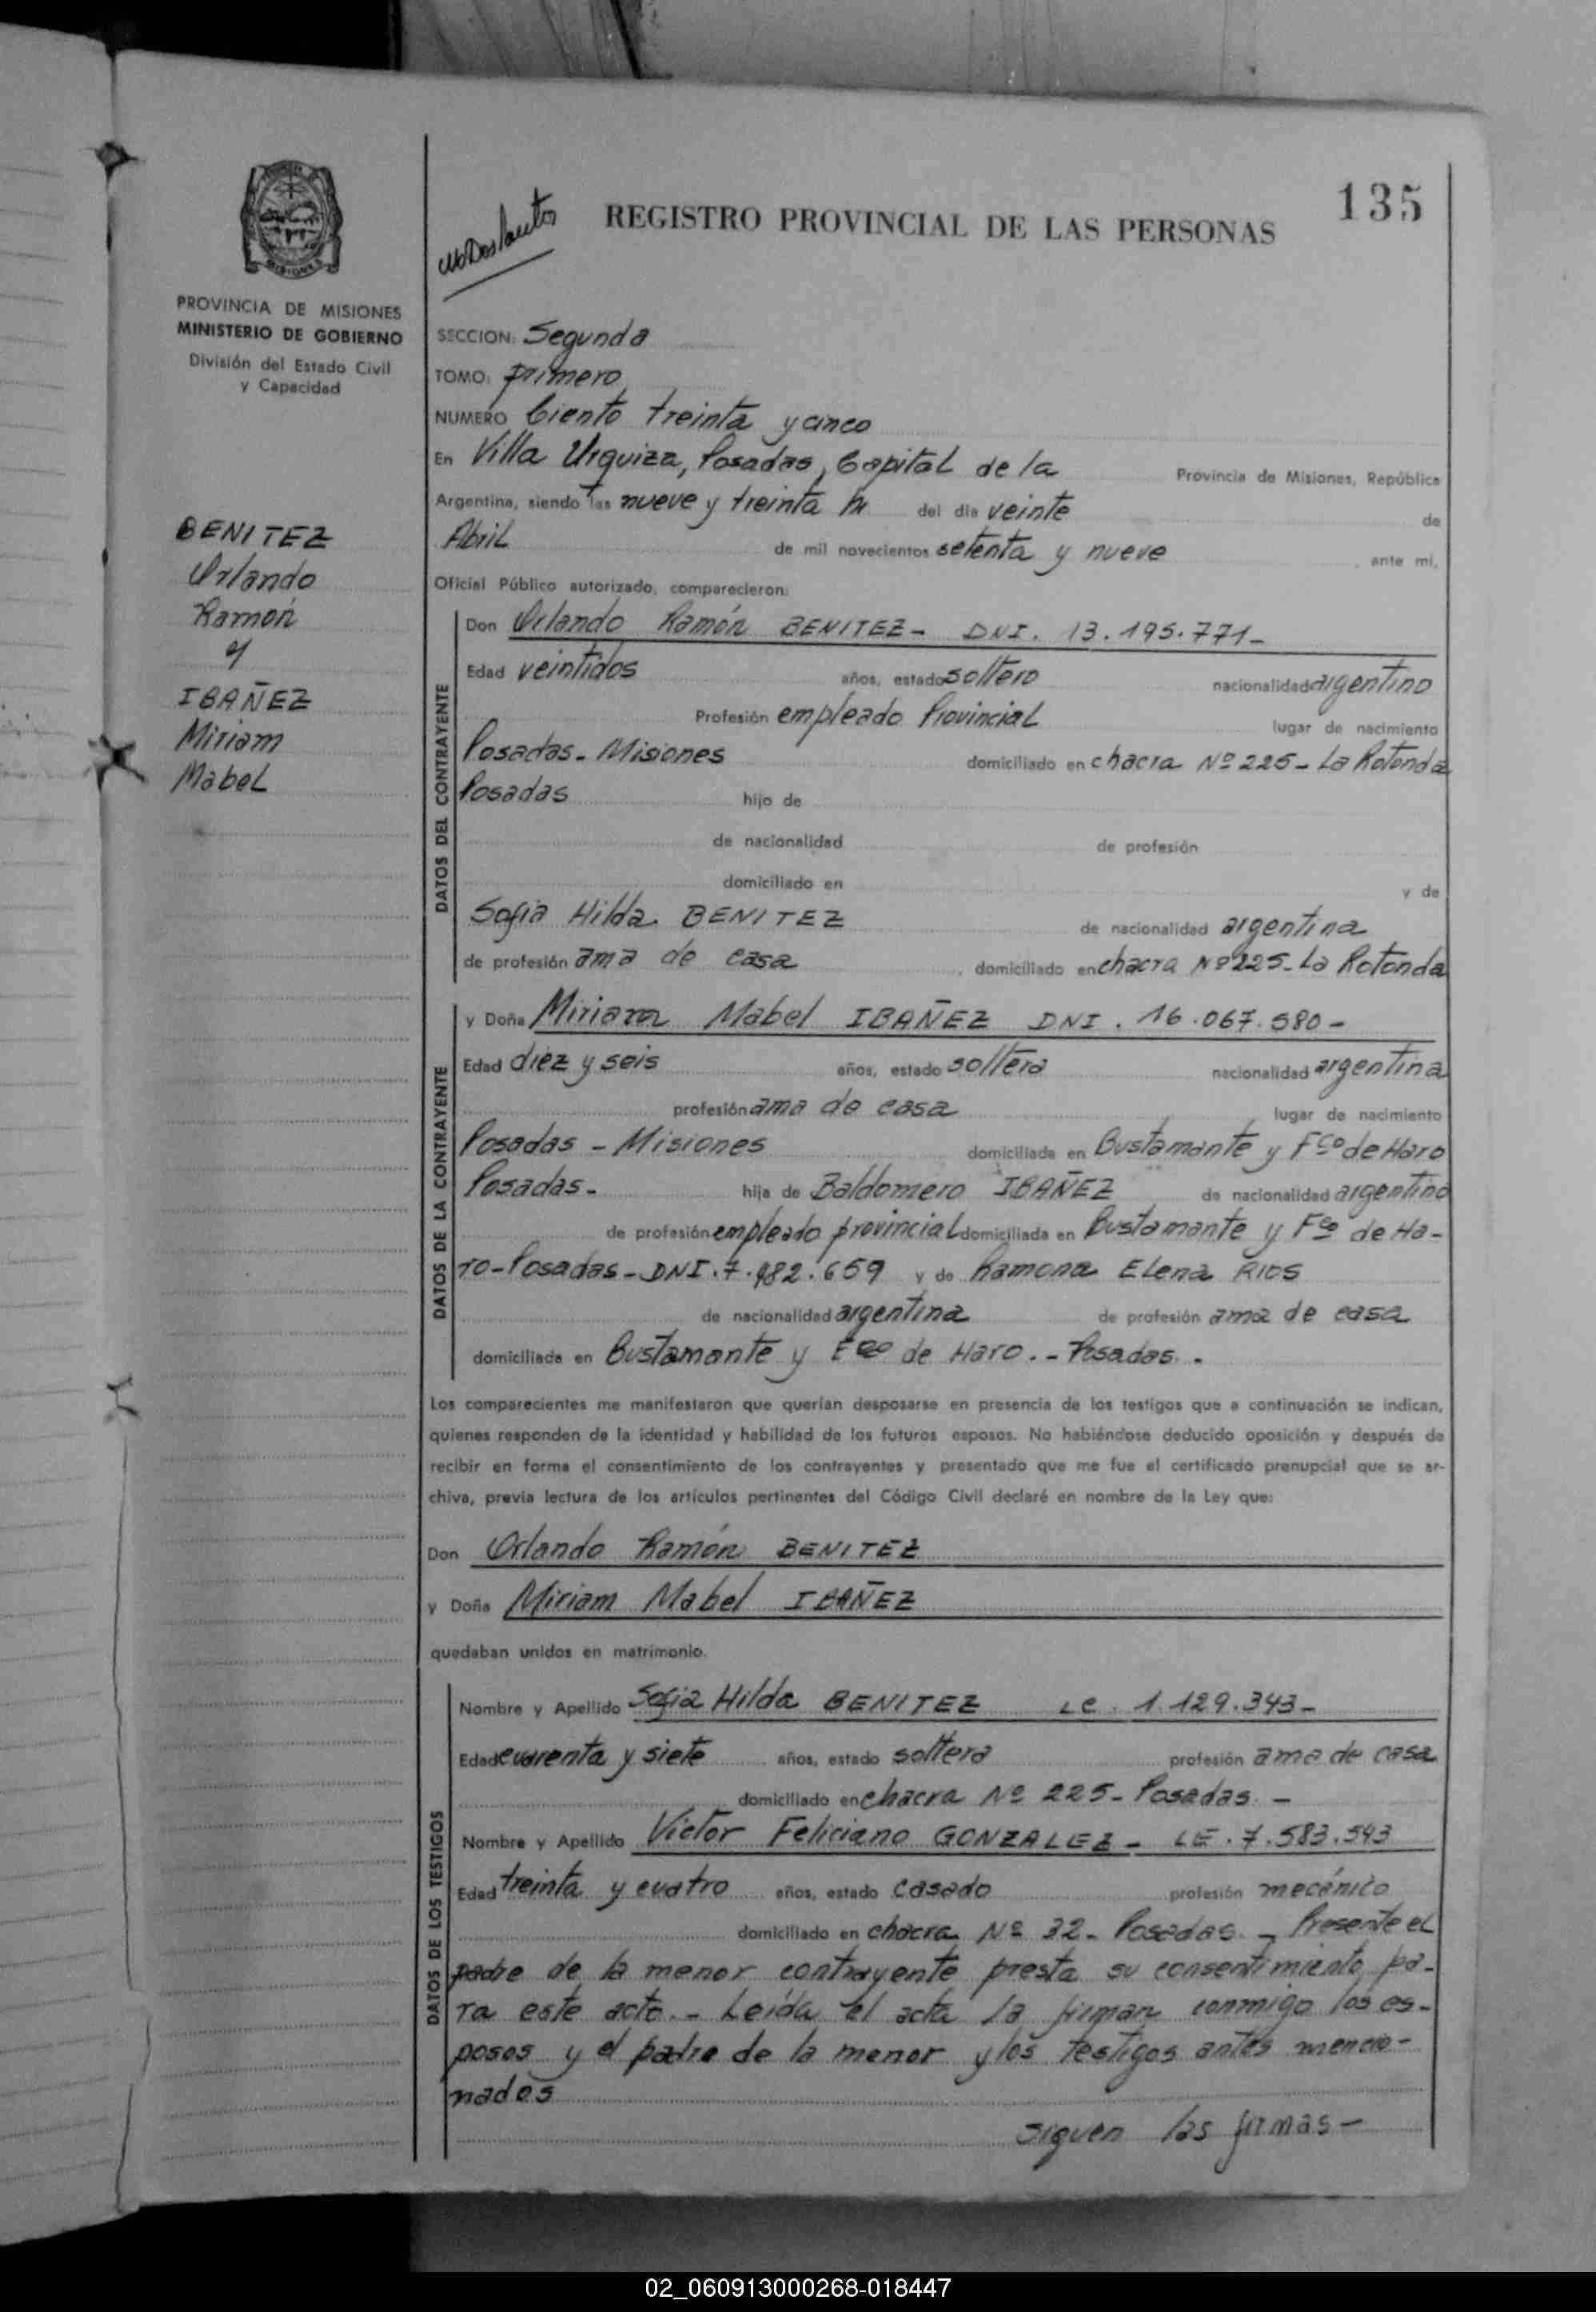 135
REGISTRO PROVINCIAL DE LAS PERSONAS
MISIONES
PROVINCIA DE MISIONES
MINISTERIO DE GOBIERNO
División del Estado Civil
y Capacidad
BENITEZ
Orlando
Ramón
y
IBAÑEZ
Miriam
Mabel
SECCION: Segunda
TOMO: primero
NUMERO Ciento treinta y cinco
En Villa Urquiza, Posadas, Capital de la Provincia de Misiones, República
Argentina, siendo las nueve y treinta hs del día veinte de
Abril de mil novecientos setenta y nueve, ante mí,
Oficial Público autorizado, comparecieron:
DATOS DEL CONTRAYENTE
Don Orlando Ramón BENITEZ - DNI. 13.195.771-
Edad veintidos años, estado soltero nacionalidad argentino
Profesión empleado Provincial lugar de nacimiento
Posadas - Misiones domiciliado en chacra Nº 225 - La Rotonda
Posadas hijo de
de nacionalidad de profesión
domiciliado en y de
Sofia Hilda BENITEZ de nacionalidad argentina
de profesión ama de casa, domiciliado en chacra Nº 225 - La Rotonda
DATOS DE LA CONTRAYENTE
y Doña Miriam Mabel IBAÑEZ DNI. 16.067.580-
Edad diez y seis años, estado soltera nacionalidad argentina
profesión ama de casa lugar de nacimiento
Posadas - Misiones domiciliada en Bustamante y Fco de Haro
Posadas.- hija de Baldomero IBAÑEZ de nacionalidad argentino
de profesión empleado provincial domiciliada en Bustamante y Fco de Ha-
ro - Posadas - DNI. 7.982.659 y de Ramona Elena RIOS
de nacionalidad argentina de profesión ama de casa
domiciliada en Bustamante y Fco de Haro.- Posadas.-
Los comparecientes me manifestaron que querían desposarse en presencia de los testigos que a continuación se indican,
quienes responden de la identidad y habilidad de los futuros esposos. No habiéndose deducido oposición y después de
recibir en forma el consentimiento de los contrayentes y presentado que me fue el certificado prenupcial que se ar-
chiva, previa lectura de los artículos pertinentes del Código Civil declaré en nombre de la Ley que:
Don Orlando Ramón BENITEZ
y Doña Miriam Mabel IBAÑEZ
quedaban unidos en matrimonio.
DATOS DE LOS TESTIGOS
Nombre y Apellido Sofia Hilda BENITEZ LC. 1.129.343-
Edad cuarenta y siete años, estado soltera profesión ama de casa
domiciliado en chacra Nº 225 - Posadas. -
Nombre y Apellido Victor Feliciano GONZALEZ - LE. 7.583.543
Edad treinta y cuatro años, estado casado profesión mecánico
domiciliado en chacra Nº 32 - Posadas. - Presente el
padre de la menor contrayente presta su consentimiento pa-
ra este acto.- Leída el acta la firman conmigo los es-
posos y el padre de la menor y los testigos antes mencio-
nados
siguen las firmas -
02_060913000268-018447